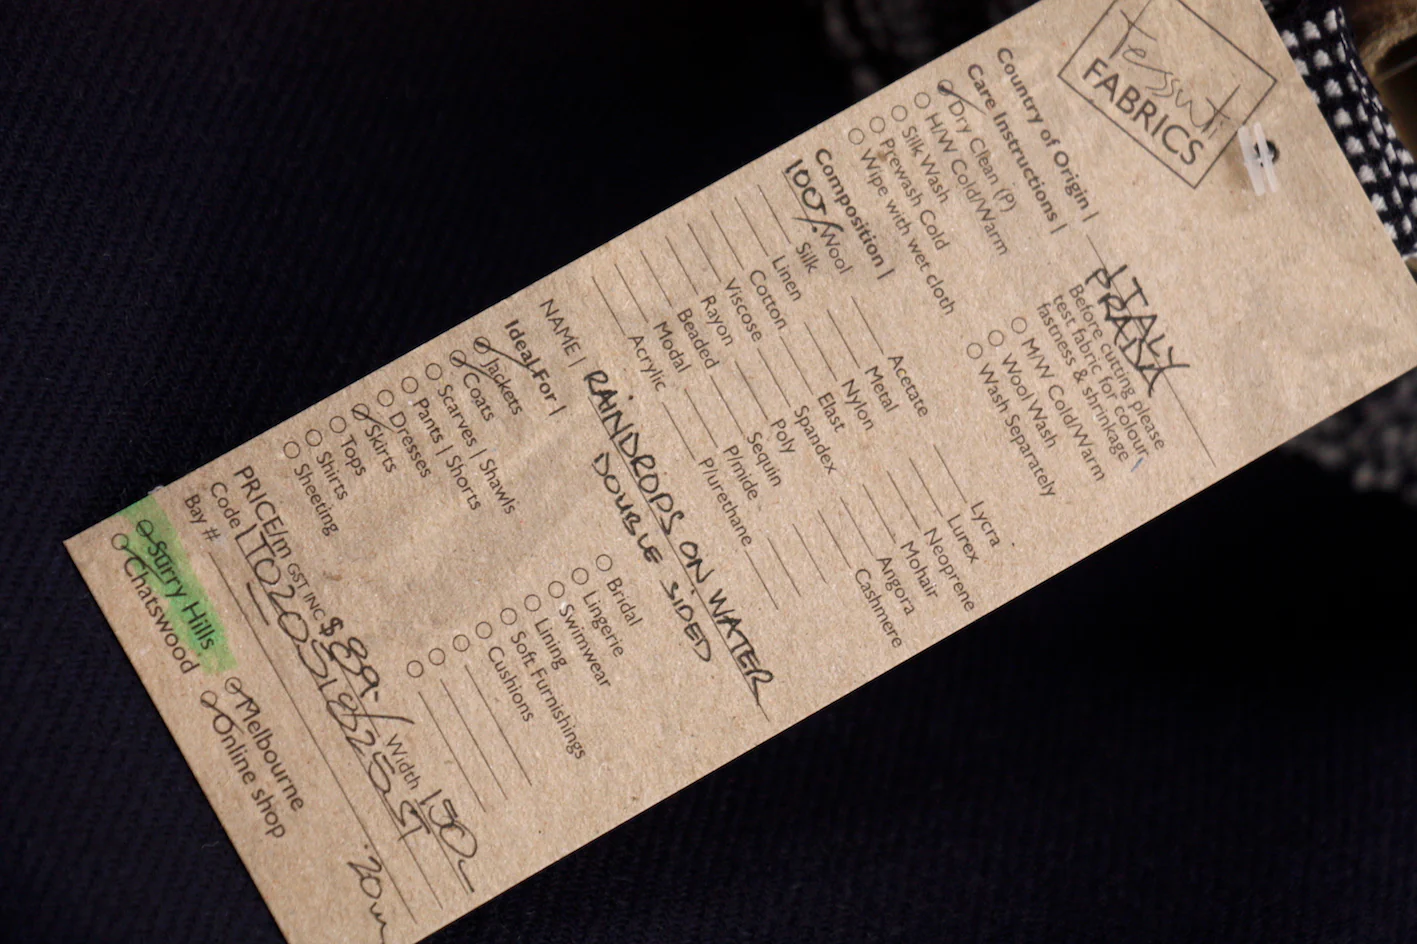 Tessuti
FABRICS
Country of Origin | ITALY
PRADA
Care Instructions |
Before cutting please
test fabric for colour
fastness & shrinkage
Dry Clean (P)
H/W Cold/Warm
Silk Wash
Prewash Cold
Wipe with wet cloth
M/W Cold/Warm
Wool Wash
Wash Separately
Composition |
100% Wool
Silk
Linen
Cotton
Viscose
Rayon
Beaded
Modal
Acrylic
Acetate
Metal
Nylon
Elast
Spandex
Poly
Sequin
P/mide
P/urethane
Lycra
Lurex
Neoprene
Mohair
Angora
Cashmere
NAME | RAINDROPS ON WATER
DOUBLE SIDED
Ideal For |
Jackets
Coats
Scarves | Shawls
Pants | Shorts
Dresses
Skirts
Tops
Shirts
Sheeting
Bridal
Lingerie
Swimwear
Lining
Soft Furnishings
Cushions
PRICE/m GST INC $89-/ Width 150
Code |
Bay #
20m
Surry Hills
Chatswood
Melbourne
Online shop